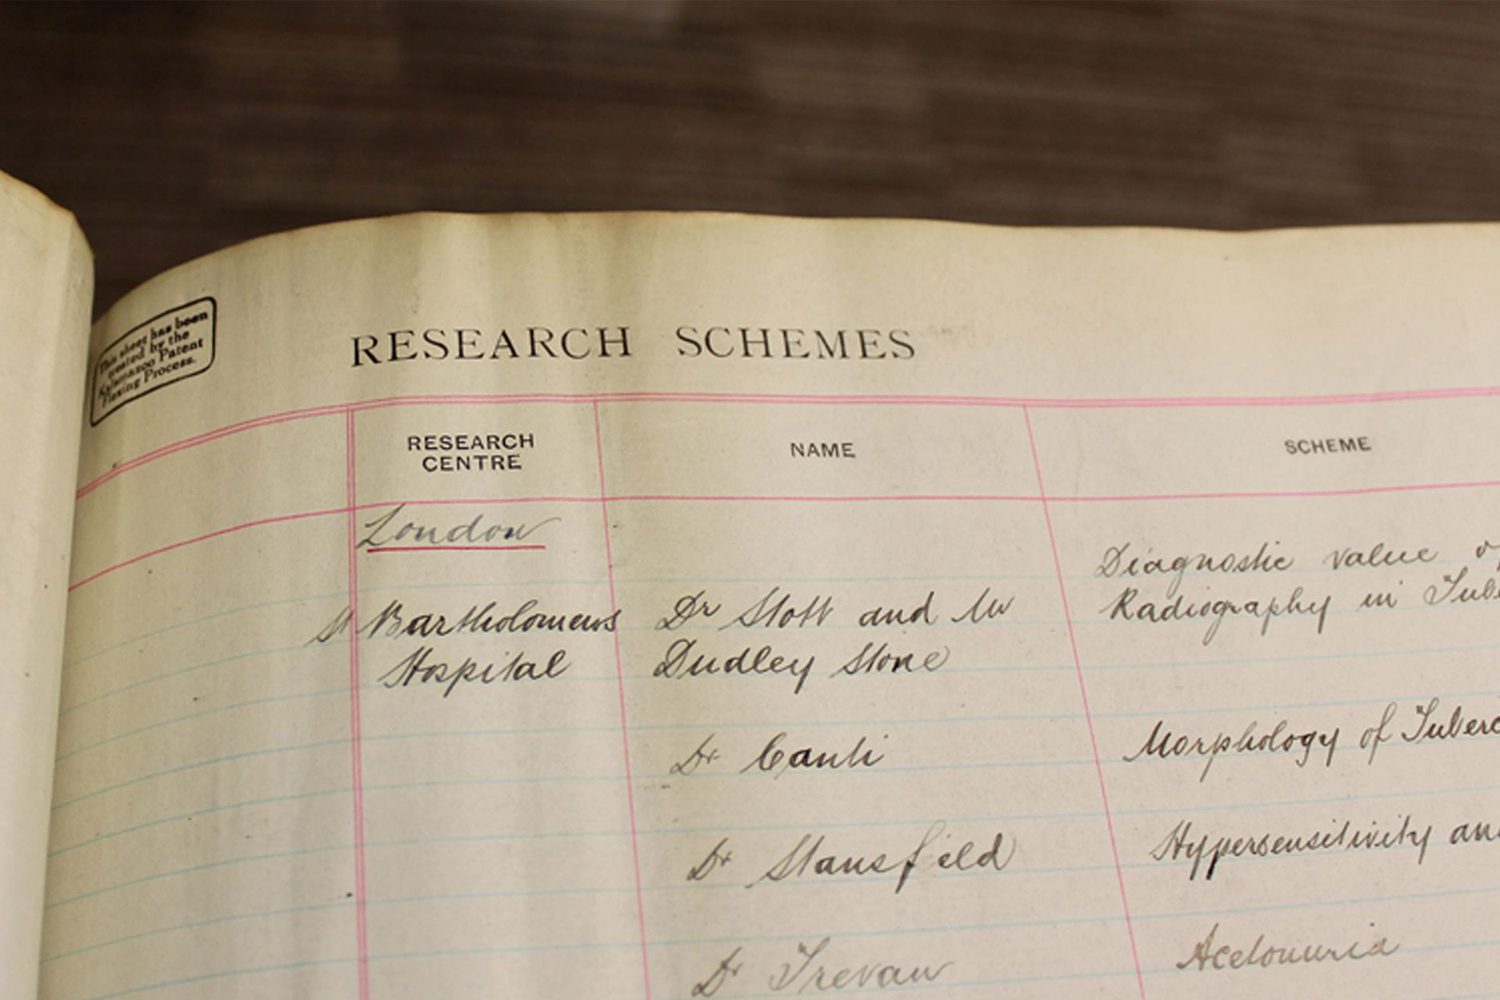 This sheet has been
treated by the
Kalamazoo Patent
Flexing Process.
RESEARCH SCHEMES
RESEARCH
CENTRE
NAME
SCHEME
London
St Bartholomews
Hospital
Dr Stott and Mr
Dudley Stone
Diagnostic value of
Radiography in Tube
Dr Canti
Morphology of Tuberc
Dr Stansfeild
Hypersensitivity and
Dr Trevan
Acetonuria